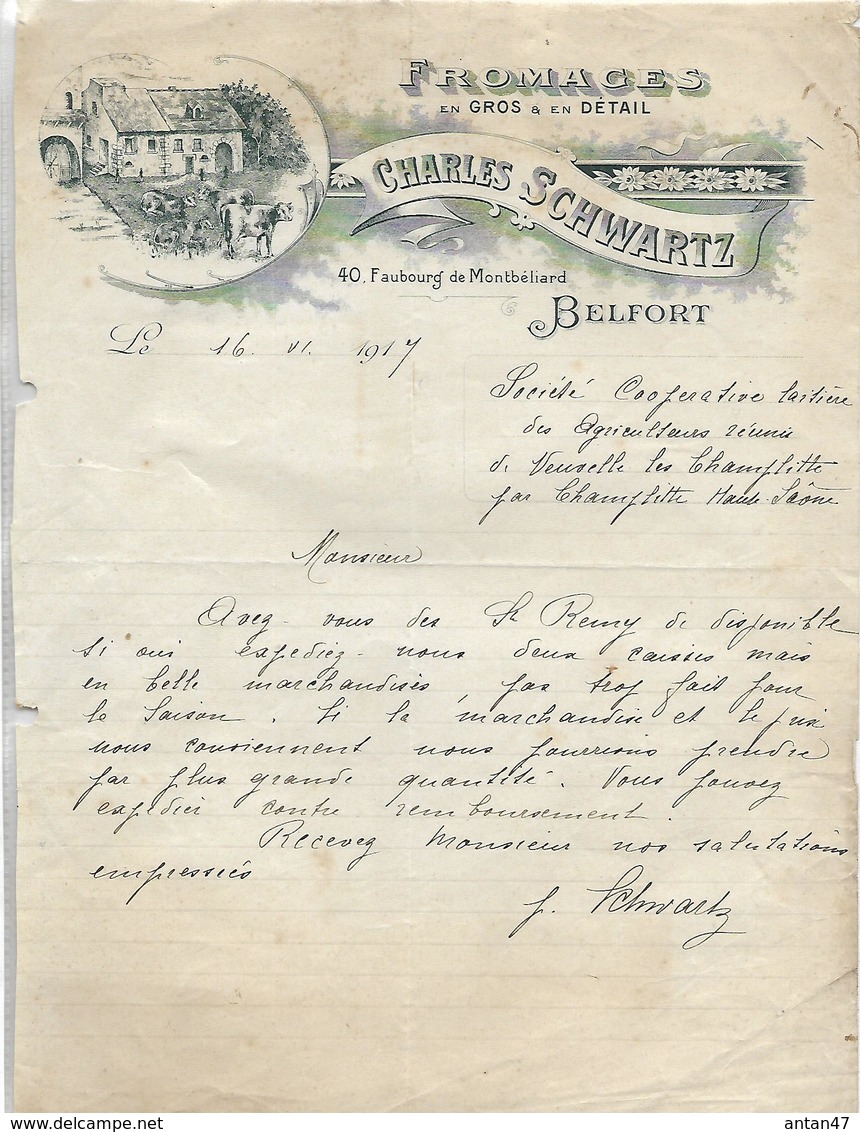 FROMAGES
EN GROS & EN DÉTAIL
CHARLES SCHWARTZ
40, Faubourg de Montbéliard
BELFORT
Le 16. VI. 1917
Société Cooperative laitière
des Agriculteurs réunis
de Neuvelle les Champlitte
par Champlitte Haute-Saône
Monsieur
Avez-vous des St Remy de disponible
si oui expediez-nous deux caisses mais
en belle marchandises, pas trop fait pour
la Saison. Si la marchandise et le prix
nous conviennent nous pourrions prendre
par plus grande quantité. Vous pouvez
expedier contre remboursement.
Recevez Monsieur nos salutations
empressées
Schwartz
delcampe.net
antan47